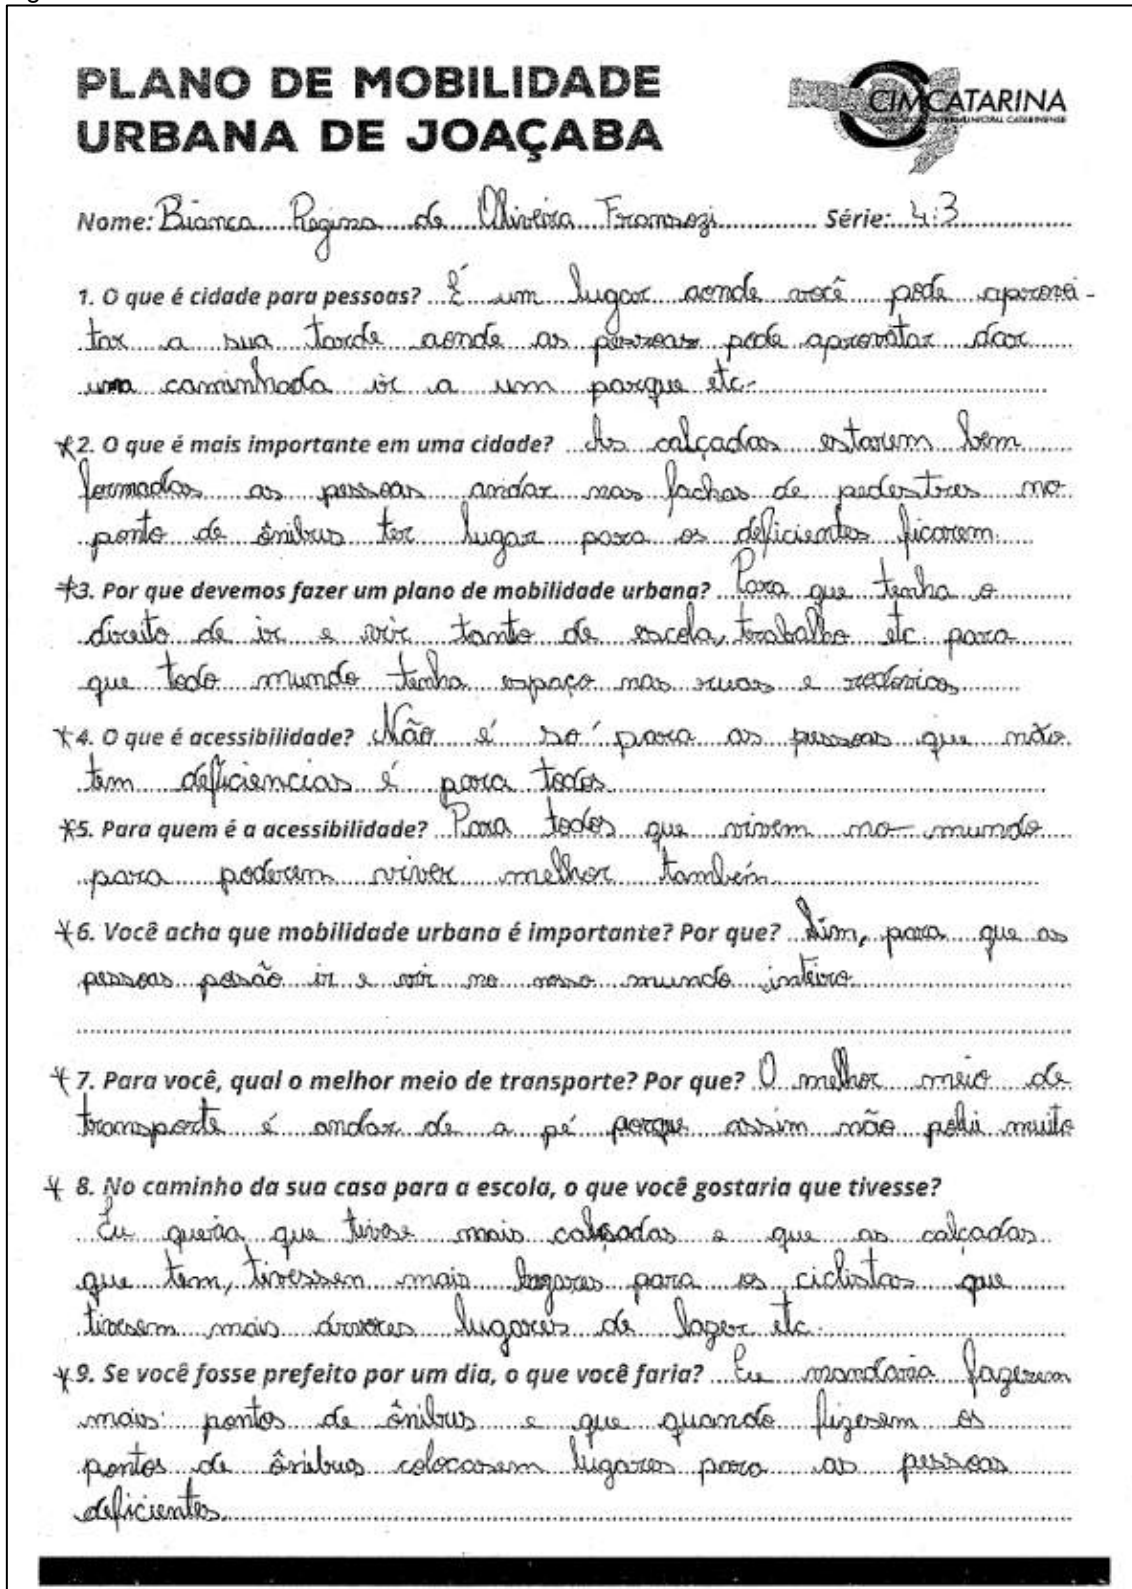 PLANO DE MOBILIDADE
URBANA DE JOAÇABA
CIMCATARINA
CONSÓRCIO INTERMUNICIPAL CATARINENSE
Nome: Bianca Regina de Oliveira Franzozi Série: 4:3
1. O que é cidade para pessoas? É um lugar aonde você pode aprovei-
tar a sua tarde aonde as pessoas pode aprovatar dar
uma caminhada ir a um parque etc.
2. O que é mais importante em uma cidade? As calçadas estarem bem
formadas as pessoas andar nas fachas de pedestres no
ponto de ônibus ter lugar para os deficientes ficarem.
3. Por que devemos fazer um plano de mobilidade urbana? Para que tenha o
direito de ir e vir tanto de escola, trabalho etc. para
que todo mundo tenha espaço nas ruas e rodovias
4. O que é acessibilidade? Não é só para as pessoas que não
tem deficiencias é para todos
5. Para quem é a acessibilidade? Para todos que vivem no mundo
para poderem viver melhor também
6. Você acha que mobilidade urbana é importante? Por que? Sim, para que as
pessoas posão ir e vir no nosso mundo inteiro
7. Para você, qual o melhor meio de transporte? Por que? O melhor meio de
transporte é andar de a pé porque assim não polui muito
8. No caminho da sua casa para a escola, o que você gostaria que tivesse?
Eu queria que tivese mais calsadas e que as calçadas
que tem, tivessem mais lugares para os ciclistas que
tivesem mais árvores lugares de lazer etc.
9. Se você fosse prefeito por um dia, o que você faria? Eu mandaria fazerem
mais pontos de ônibus e que quando fizesem os
pontos de ônibus colocasem lugares para as pessoas
deficientes.